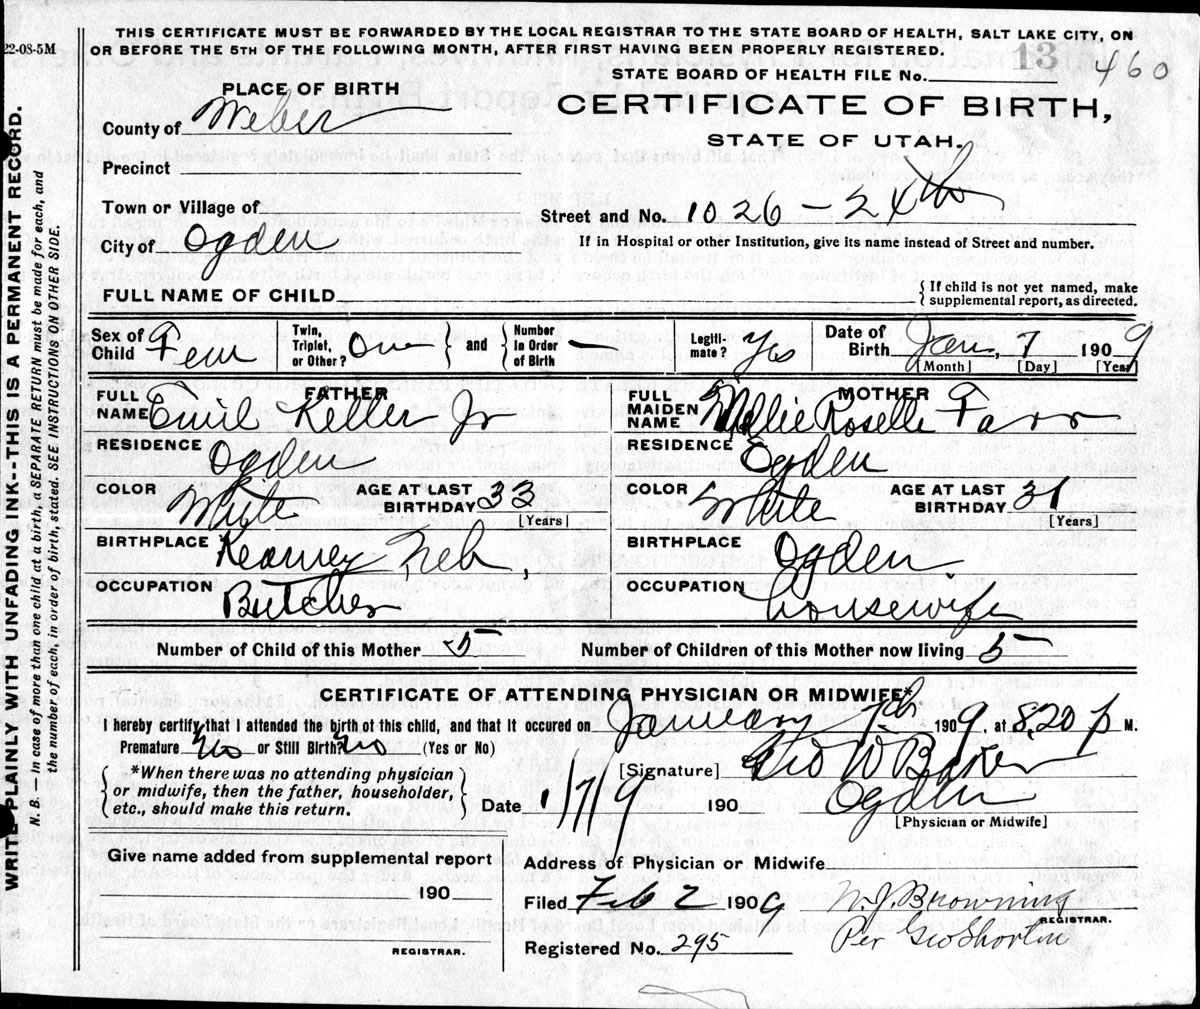 22-08-5M
THIS CERTIFICATE MUST BE FORWARDED BY THE LOCAL REGISTRAR TO THE STATE BOARD OF HEALTH, SALT LAKE CITY, ON
OR BEFORE THE 5TH OF THE FOLLOWING MONTH, AFTER FIRST HAVING BEEN PROPERLY REGISTERED.
13 460
STATE BOARD OF HEALTH FILE No.
PLACE OF BIRTH
CERTIFICATE OF BIRTH,
STATE OF UTAH.
County of Weber
Precinct
Town or Village of
Street and No. 1026 - 24th
City of Ogden
If in Hospital or other Institution, give its name instead of Street and number.
FULL NAME OF CHILD
If child is not yet named, make
supplemental report, as directed.
Sex of Child Fem
Twin, Triplet, or Other? One
and
Number in Order of Birth —
Legiti-mate? Yes
Date of Birth Jan, 7 1909
[Month] [Day] [Year]
FATHER
FULL NAME Emil Keller Jr
RESIDENCE Ogden
COLOR White
AGE AT LAST BIRTHDAY 33 [Years]
BIRTHPLACE Kearney Neb,
OCCUPATION Butcher
MOTHER
FULL MAIDEN NAME Nellie Roselle Farr
RESIDENCE Ogden
COLOR White
AGE AT LAST BIRTHDAY 31 [Years]
BIRTHPLACE Ogden
OCCUPATION housewife
Number of Child of this Mother 5
Number of Children of this Mother now living 5
CERTIFICATE OF ATTENDING PHYSICIAN OR MIDWIFE*
I hereby certify that I attended the birth of this child, and that it occured on January 7th 1909, at 8,20 p M.
Premature No or Still Birth? No (Yes or No)
*When there was no attending physician
or midwife, then the father, householder,
etc., should make this return.
[Signature] Geo W Baker
Date 1/7/9 190
Ogden
[Physician or Midwife]
Give name added from supplemental report
190
REGISTRAR.
Address of Physician or Midwife
Filed Feb 2 1909
N. J. Browning
REGISTRAR.
Registered No. 295
Per Geo Shorten
WRITE PLAINLY WITH UNFADING INK--THIS IS A PERMANENT RECORD.
N. B. — In case of more than one child at a birth, a SEPARATE RETURN must be made for each, and
the number of each, in order of birth, stated. SEE INSTRUCTIONS ON OTHER SIDE.